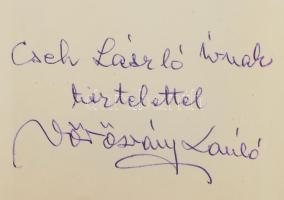 Cseh László úrnak
tisztelettel
Vörösváry László